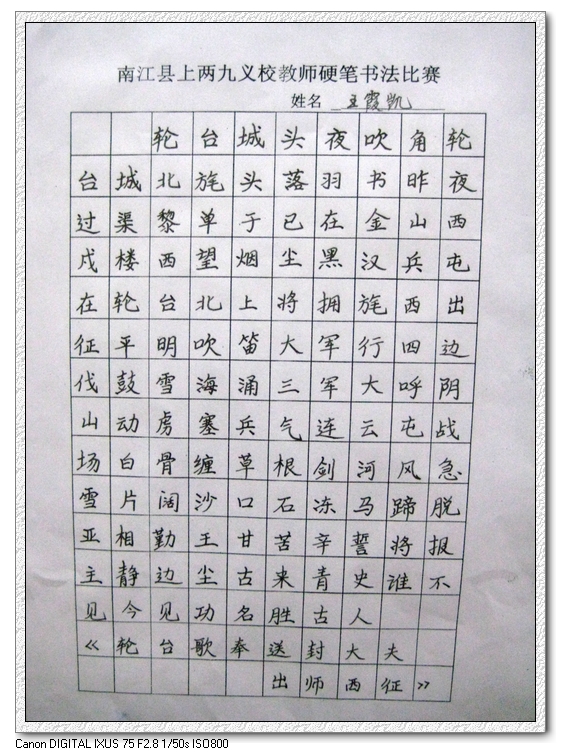 南江县上两九义校教师硬笔书法比赛
姓名 王霞凯
轮台城头夜吹角轮
台城北旄头落羽书昨夜
过渠黎单于已在金山西
戍楼西望烟尘黑汉兵屯
在轮台北上将拥旄西出
征平明吹笛大军行四边
伐鼓雪海涌三军大呼阴
山动虏塞兵气连云屯战
场白骨缠草根剑河风急
雪片阔沙口石冻马蹄脱
亚相勤王甘苦辛誓将报
主静边尘古来青史谁不
见今见功名胜古人
《轮台歌奉送封大夫
出师西征》
Canon DIGITAL IXUS 75 F2.8 1/50s ISO800